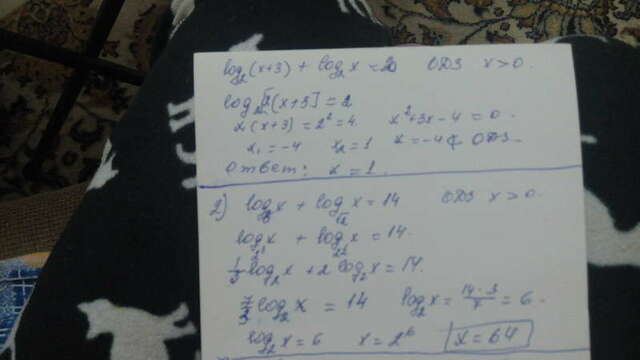 log₂(x+3) + log₂x = 2 ОДЗ x>0.
log₂[x(x+3)] = 2
x(x+3) = 2² = 4 x²+3x-4 = 0.
x₁ = -4 x₂ = 1 x = -4 ⊄ ОДЗ
Ответ: x = 1.
2) log₈x + log_√2 x = 14 ОДЗ x>0.
log_2³ x + log_2^½ x = 14.
1/3 log₂x + 2 log₂x = 14.
7/3 log₂x = 14 log₂x = 14·3/7 = 6.
log₂x = 6 x = 2⁶ x = 64